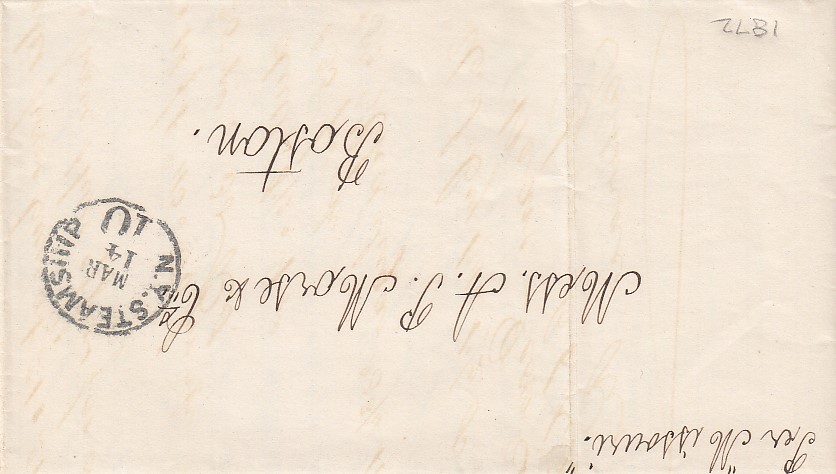 Per "Missouri."
Mess. A. P. Morse & Co
Boston.
N.Y. STEAMSHIP
MAR
14
10
1872